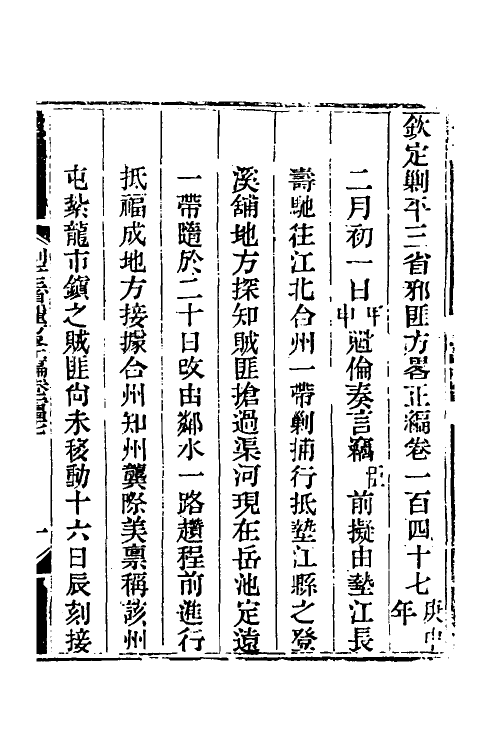 欽定剿平三省邪匪方畧正編卷一百四十七庚申年
二月初一日甲申魁倫奏言竊臣前擬由墊江長
壽馳往江北合州一帶剿捕行抵墊江縣之登
溪舖地方探知賊匪搶過渠河現在岳池定遠
一帶隨於二十日改由鄰水一路趲程前進行
抵福成地方接據合州知州龔際美禀稱該州
屯紮龍市鎮之賊匪尙未移動十六日辰刻接